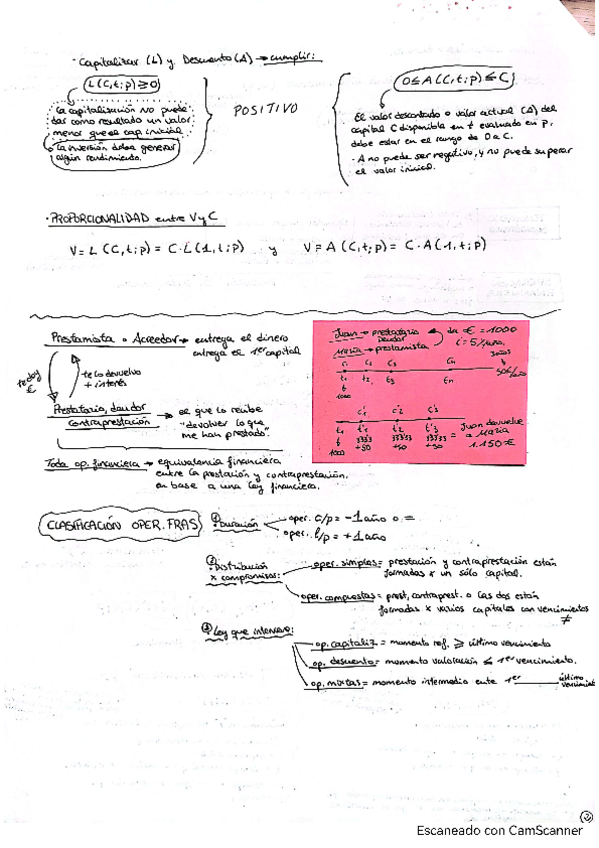 · Capitalizar (L) y Descuento (A) → cumplir:
L(C,t;p) ≥ 0
La capitalización no puede
dar como resultado un valor
menor que el cap. inicial
La inversión debe generar
algún rendimiento.
POSITIVO
0 ≤ A(C,t;p) ≤ C
El valor descontado o valor actual (A) del
capital C disponible en t evaluado en p,
debe estar en el rango de 0 a C.
· A no puede ser negativo, y no puede superar
el valor inicial.
· PROPORCIONALIDAD entre V y C
V = L(C,t;p) = C·L(1,t;p) y V = A(C,t;p) = C·A(1,t;p)
Prestamista o Acreedor → entrega el dinero
entrega el 1er capital
te doy
€
te lo devuelvo
+ interés
Prestatario, deudor → el que lo recibe
contraprestación
"devolver lo que
me han prestado".
Juan → prestatario
deudor
María → prestamista
da € = 1000
i = 5%/año.
3años
C1 C2 C3 Cn
t1 t2 t3 tn
1000
50€/año
C'1 C'2 C'3
t1 t'1 t'2 t'3
1000
333'33 333'33 333'33
+50 +50 +50
= Juan devuelve
a María
1.150€
Toda op. financiera → equivalencia financiera
entre la prestación y contraprestación.
en base a una ley financiera.
CLASIFICACIÓN OPER. FRAS
1 Duración
oper. c/p = -1 año o =
oper. l/p = +1 año
2 Distribución
x compromisos:
oper. simples = prestación y contraprestación están
formadas x un sólo capital.
oper. compuestas = prest, contraprest. o las dos están
formadas x varios capitales con vencimientos
≠
3 Ley que interviene:
op. capitaliz. = momento ref. ≥ último vencimiento
op. descuento = momento valoración ≤ 1er vencimiento.
op. mixtas = momento intermedio entre 1er ____ último
vencimiento
Escaneado con CamScanner